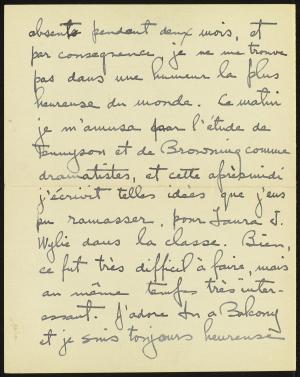 absente pendent deux mois, et
par consequence je ne me trouve
pas dans une humeur la plus
heureuse du monde. Ce matin
je m'amusa par l'étude de
Tennyson et de Browning comme
dramatistes, et cette aprèsmidi
j'écrivit telles idées que j'eus
pu ramasser, pour Laura J.
Wylie dans la classe. Bien,
ce fut très difficil à faire, mais
au même temps très inter-
essant. J'adore In a Balcony
et je suis toujours heureuse